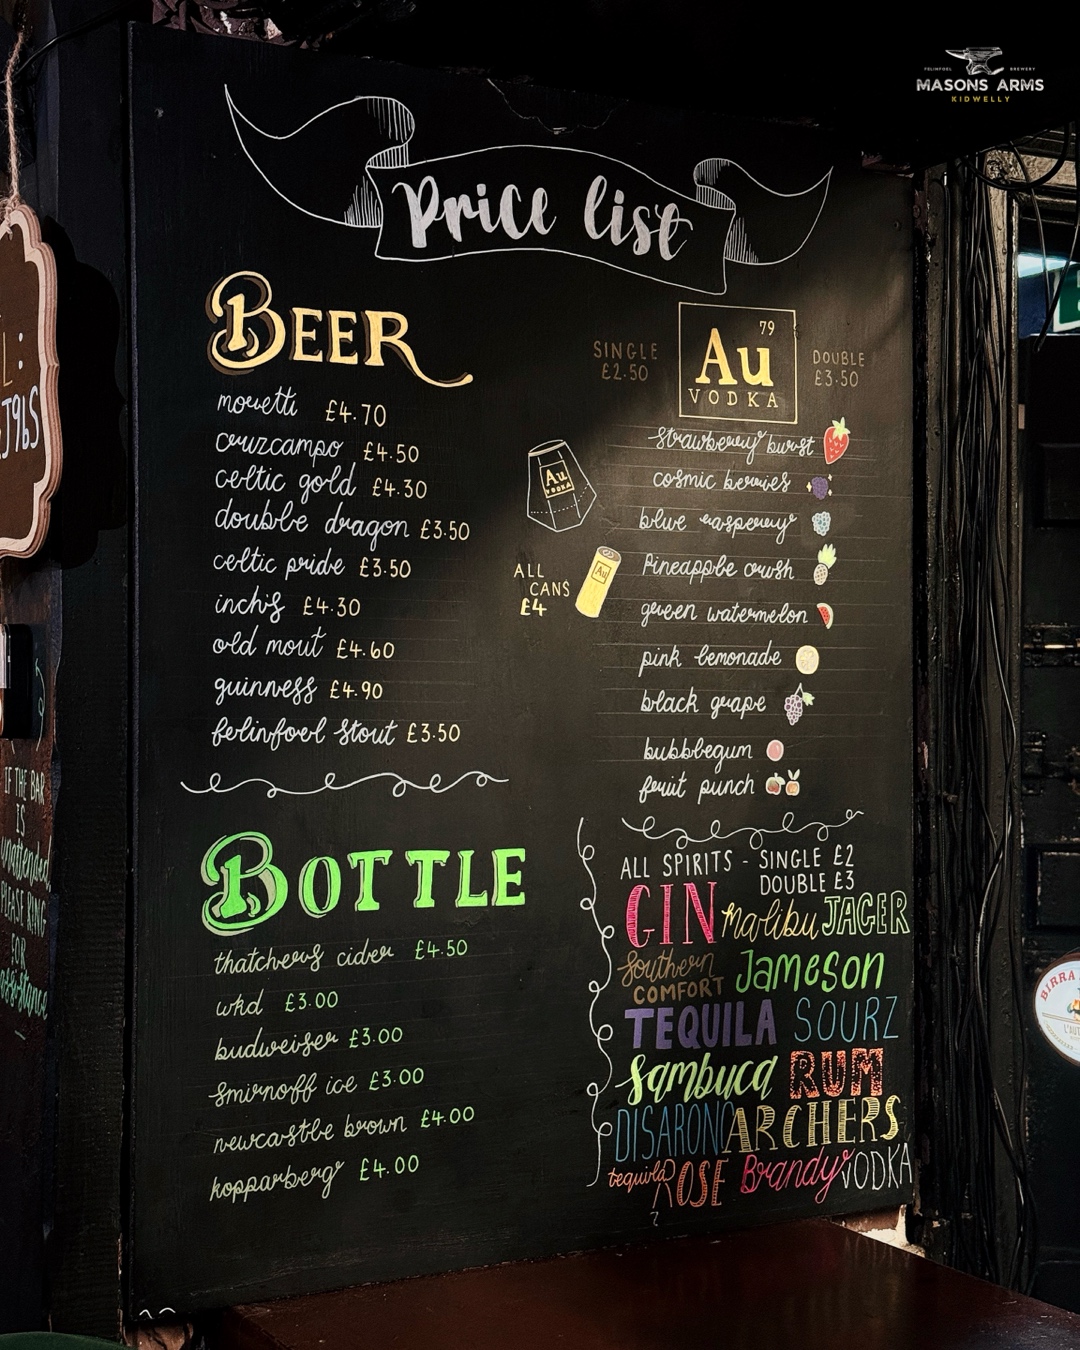 FELINFOEL BREWERY
MASONS ARMS
KIDWELLY
Price list
BEER
moretti £4.70
cruzcampo £4.50
celtic gold £4.30
double dragon £3.50
celtic pride £3.50
inch's £4.30
old mout £4.60
guinness £4.90
felinfoel stout £3.50
BOTTLE
thatchers cider £4.50
wkd £3.00
budweiser £3.00
smirnoff ice £3.00
newcastle brown £4.00
kopparberg £4.00
SINGLE
£2.50
79
Au
VODKA
DOUBLE
£3.50
Au
VODKA
ALL
CANS
£4
Au
strawberry burst
cosmic berries
blue rasperry
Pineapple crush
green watermelon
pink lemonade
black grape
bubblegum
fruit punch
ALL SPIRITS - SINGLE £2
DOUBLE £3
GIN Malibu JAGER
Southern COMFORT Jameson
TEQUILA SOURZ
Sambuca RUM
DISARONO ARCHERS
tequila ROSE Brandy VODKA
L:
J96S
IF THE BAR
IS
unattended
PLEASE RING
FOR
assistance
BIRRA